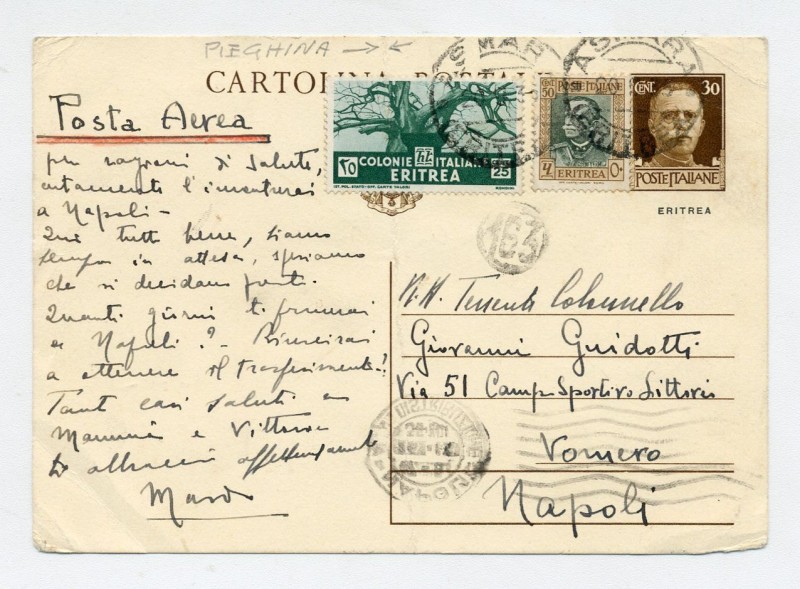 PIEGHINA
CARTOLINA POSTALE
Posta Aerea
ASMARA
ASMARA
٢٥ COLONIE ITALIANE 25
ERITREA
IST. POL. STATO - OFF. CARTE VALORI
CENT. 50 POSTE ITALIANE
ERITREA
CENT. 30
POSTE ITALIANE
ERITREA
153
per ragioni di salute,
certamente l'incontrerai
a Napoli -
Qui tutti bene, siamo
sempre in attesa, speriamo
che si decidano
Quanti giorni ti fermerai
a Napoli? - Riuscirai
a ottenere il trasferimento?
Tanti cari saluti a
Mammà e Vittoria
ti abbracci affettuosamente
Mario
N.H. Tenente Colonnello
Giovanni Guidotti
Via 51 Campo Sportivo Littorio
Vomero
Napoli
NAPOLI